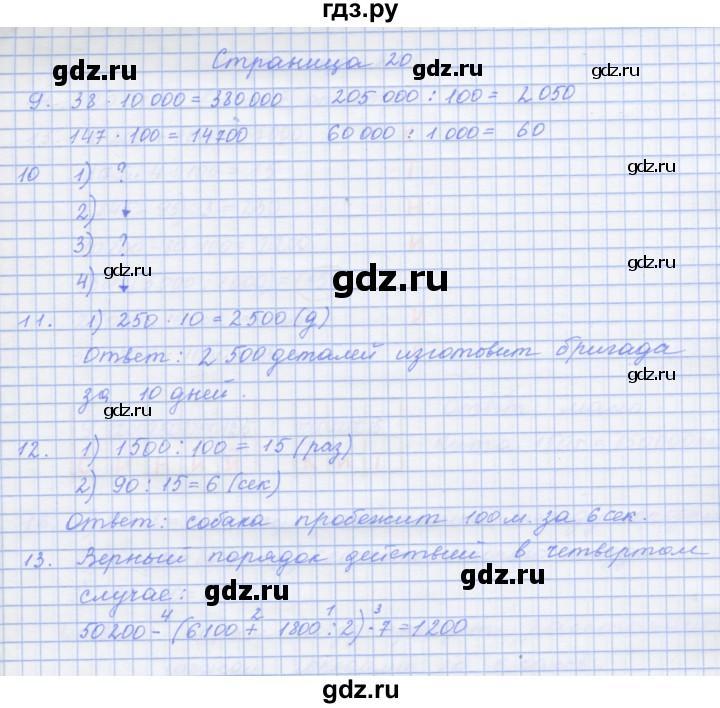 гдз.ру
Страница 20
gdz.ru gdz.ru gdz.ru
9. 38 · 10 000 = 380 000 205 000 : 100 = 2 050
147 · 100 = 14700 60 000 : 1 000 = 60
gdz.ru gdz.ru
10 1) ?
gdz.ru
2) ↓
3) ?
gdz.ru gdz.ru gdz.ru
4) ↓
11. 1) 250 · 10 = 2 500 (д)
Ответ: 2 500 деталей изготовит бригада
gdz.ru
за 10 дней.
gdz.ru
12. 1) 1500 : 100 = 15 (раз)
2) 90 : 15 = 6 (сек)
Ответ: собака пробежит 100 м. за 6 сек.
13. Верный порядок действий в четвертом
gdz.ru
случае:
gdz.ru gdz.ru
4 2 1 3
50 200 - (6 100 + 1800 : 2) · 7 = 1200
gdz.ru